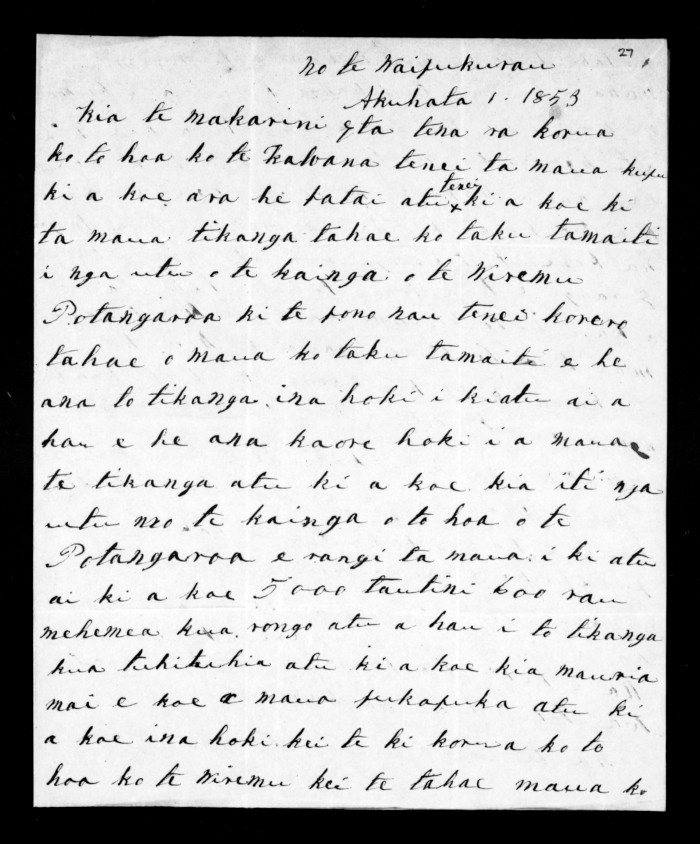 27
No te Waipukurau
Akuhata 1. 1853
Kia te makarini e ta tena ra korua
ko to hoa ko te Kawana tenei ta maua kupu
ki a koe ara he patai atu tenei ki a koe ki
ta maua tikanga tahae ko taku tamaiti
i nga utu o te kainga o te Wiremu
Potangaroa ki te pono nau tenei korero
tahae o maua ko taku tamaiti e he
ana to tikanga ina hoki i kiatu ai a
hau e he ana kaore hoki i a maua
te tikanga atu ki a koe kia iti nga
utu mo te kainga o to hoa o te
Potangaroa e rangi ta maua i ki atu
ai ki a koe 5000 tautini 600 rau
mehemea kua rongo atu a hau i to tikanga
kua tuhituhia atu ki a koe kia mauria
mai e koe maua pukapuka atu ki
a koe ina hoki kei te ki korua ko to
hoa ko te Wiremu kei te tahae maua ko